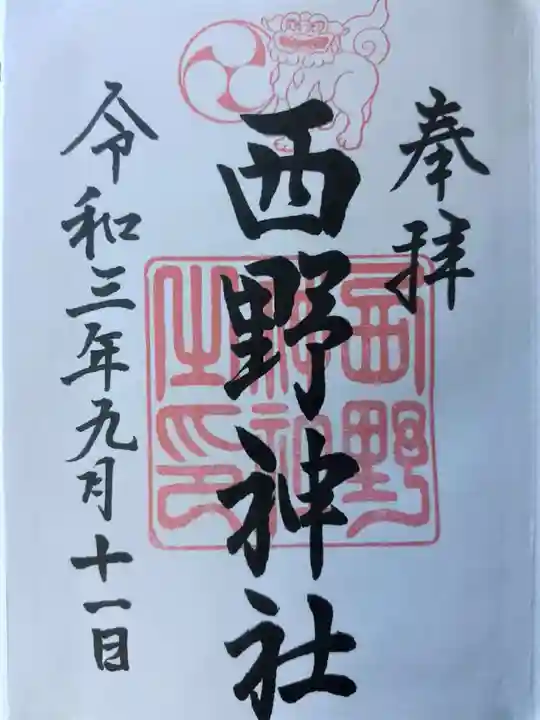 奉拝
西野神社
西野神社之印
令和三年九月十一日